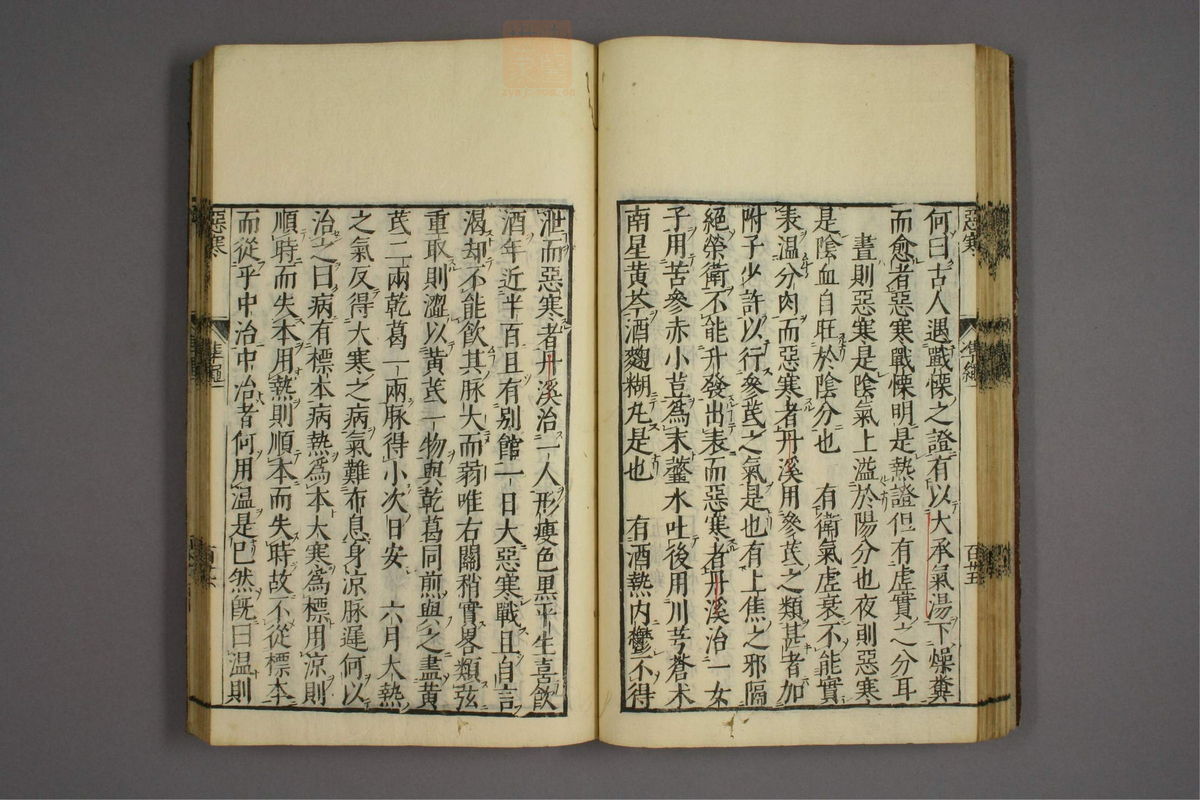 惡寒
準繩
百廿五
何曰古人遇戰慄之證有以大承氣湯下燥糞
而愈者惡寒戰慄明是熱證但有虛實之分耳
晝則惡寒是陰氣上溢於陽分也夜則惡寒
是陰血自旺於陰分也 有衛氣虛衰不能實
表溫分肉而惡寒者丹溪用參芪之類甚者加
附子少許以行參芪之氣是也有上焦之邪隔
絕榮衛不能升發出表而惡寒者丹溪治一女
子用苦參赤小荳爲末虀水吐後用川芎蒼朮
南星黃芩酒麴糊丸是也 有酒熱內鬱不得
泄而惡寒者丹溪治一人形瘦色黑平生喜飮
酒年近半百且有別館一日大惡寒戰且自言
渴却不能飮其脉大而弱唯右關稍實畧類弦
重取則澀以黃芪一物與乾葛同煎與之盡黃
芪二兩乾葛一兩脉得小次日安 六月大熱
之氣反得大寒之病氣難布息身凉脉遲何以
治之曰病有標本病熱爲本大寒爲標用凉則
順時而失本用熱則順本而失時故不從標本
而從乎中治中治者何用溫是已然旣曰溫則
惡寒
準繩